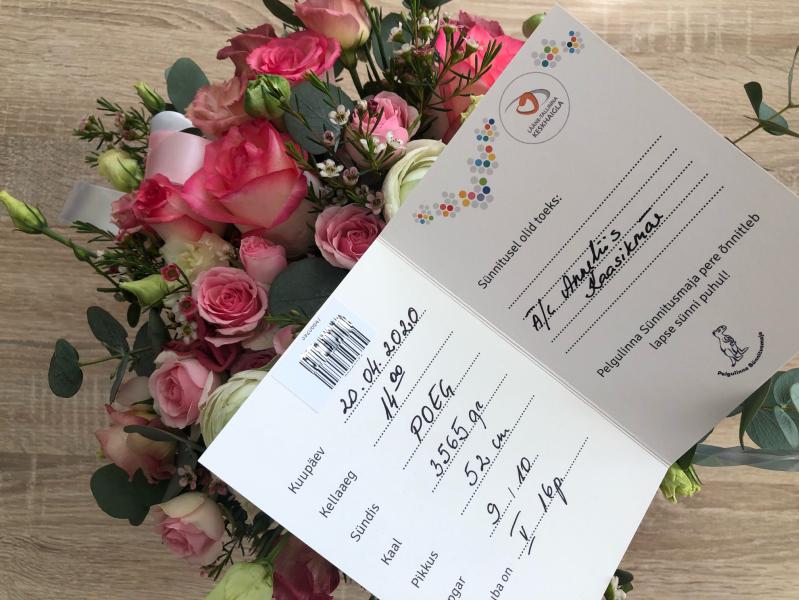 LÄÄNE-TALLINNA
KESKHAIGLA
Sünnitusel olid toeks:
Ä/e Anneliis
Raasikmäe
Pelgulinna Sünnitusmaja pere õnnitleb
lapse sünni puhul!
Pelgulinna Sünnitusmaja
Kuupäev 20.04.2020
Kellaaeg 14 00
Sündis POEG
Kaal 3565 gr
Pikkus 52 cm
pgar 9 / 10
ba on II 1kp